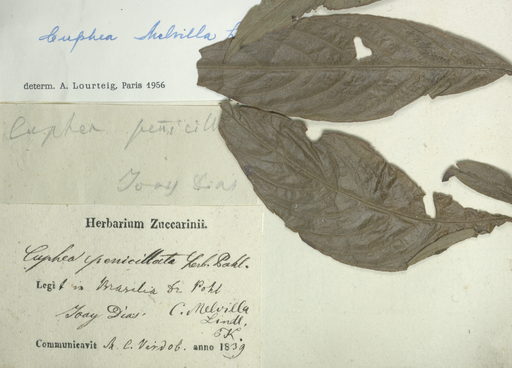 Cuphea Melvilla
determ. A. Lourteig, Paris 1956
Cuphea penicill
Joay Dias
Herbarium Zuccarinii.
Cuphea penicillata herb. Pohl.
Legit in Brasilia Dr Pohl
Joay Dias. C. Melvilla
Lindl.
Communicavit M. C. Vindob. anno 1839